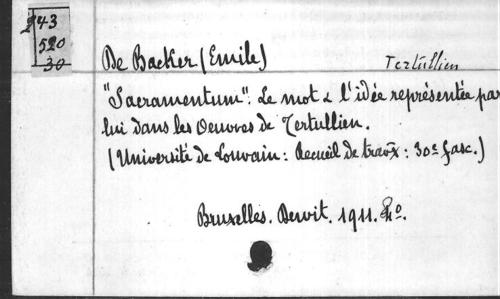 243
520
30
De Backer (Emile)
Tertullien
"Sacramentum": Le mot & l'idée représentée par
lui dans les Oeuvres de Tertullien.
(Université de Louvain: Recueil de travx: 30e fasc.)
Bruxelles. Dewit. 1911. 8o.